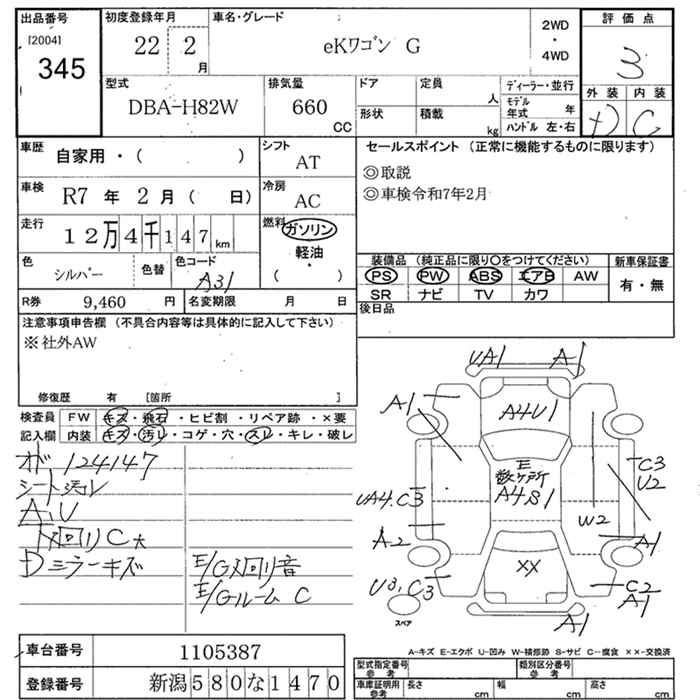 出品番号
[2004]
345
初度登録年月
22 2
月
車名・グレード
eKワゴン G
2WD
・
4WD
評価点
3
外装 内装
D C
型式
DBA-H82W
排気量
660
CC
ドア
定員
人
形状
積載
kg
ディーラー・並行
モデル年式 年
ハンドル 左・右
車歴
自家用・( )
シフト
AT
車検
R7 年 2 月 ( 日)
冷房
AC
走行
12万4千147km
燃料
ガソリン
軽油
( )
色
シルバー
色替
色コード
A31
R券
9,460 円
名変期限 月 日
セールスポイント (正常に機能するものに限ります)
◎取説
◎車検令和7年2月
装備品 (純正品に限り○をつけてください)
PS PW ABS エアB AW
SR ナビ TV カワ
新車保証書
有・無
後日品
注意事項申告欄 (不具合内容等は具体的に記入して下さい)
※社外AW
修復歴 有 [箇所 ]
検査員
記入欄
FW キズ・飛石・ヒビ割・リペア跡・×要
内装 キズ・汚レ・コゲ・穴・スレ・キレ・破レ
オド 124147
シート汚レ
A、U
下廻りC大
Dミラーキズ
E/G廻り音
E/Gルーム C
UA1
A1
A1
A4U1
E
数ヶ所
A4S1
C3
U2
UA4.C3
W2
A2
A1
XX
U3,C3
C2
A1
A1
スペア
A-キズ E-エクボ U-凹み W-補修跡 S-サビ C-腐食 ××-交換済
車台番号
1105387
登録番号
新潟580な1470
型式指定番号
参考
類別区分番号
参考
車庫証明用
参考
長さ cm
幅 cm
高さ cm